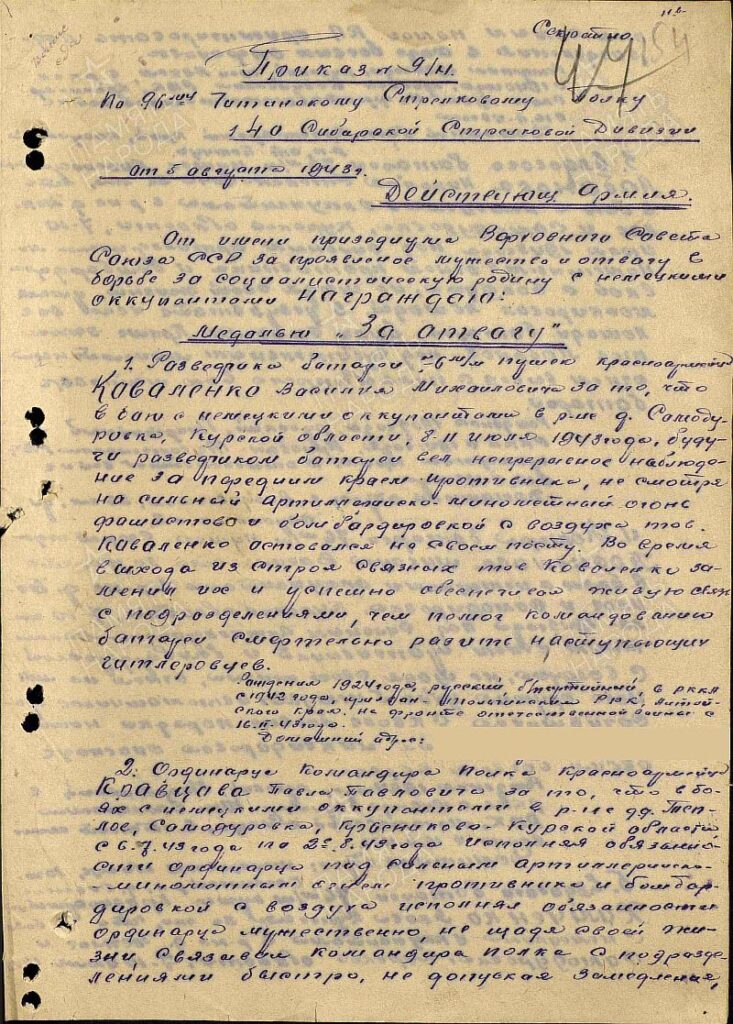 Секретно
44
154
Приказ № 9/н.
По 96му Читинскому Стрелковому Полку
140 Сибирской Стрелковой Дивизии
от 5 августа 1943г.
Действующ. Армия.
От имени призедиума Верховного Совета
Союза ССР за проявленое мужество и отвагу в
борьбе за социалистическую родину с немецкими
оккупантами Награждаю:
Медалью "За отвагу"
1. Разведчика батареи 76 м/м пушек красноармейца
Коваленко Василия Михаиловича за то, что
в бою с немецкими оккупантами в р-не д. Самоду-
ровка, Курской области, 8-11 июля 1943 года, буду-
чи разведчиком батареи вел непрерывное наблюде-
ние за передним краем противника, не смотря
на сильный Артиллерииско-минометный огонь
фашистов и бомбардировкой с воздуха тов.
Коваленко оставался на своем посту. Во время
выхода из строя связных тов Коваленко за-
менил их и успешно обеспечивал живую связь
с подразделениями, чем помог командованию
батареи смертельно разить наступающих
гитлеровцев.
Рождения 1924 года, русский, б/партийный, в РККА
с 1942 года, призван РВК, Алтай-
ского края. На фронте отечественной войны с
16.II-43 года.
Домашний адрес:
2. Ординарца Командира полка красноармейца
Кравцова Павла Павловича за то, что в бо-
ях с немецкими оккупантами в р-не д.д. Теп-
лое, Самодуровка, Курской области
с 6.7.43 года по 8.43 года исполняя обязанно-
сти ординарца под сильным артиллерииско-
-минометным огнем противника и бомбар-
дировкой с воздуха исполнял обязанности
ординарца мужественно, не щадя своей жи-
зни связывал командира полка с подразде-
лениями быстро, не допуская замедления,